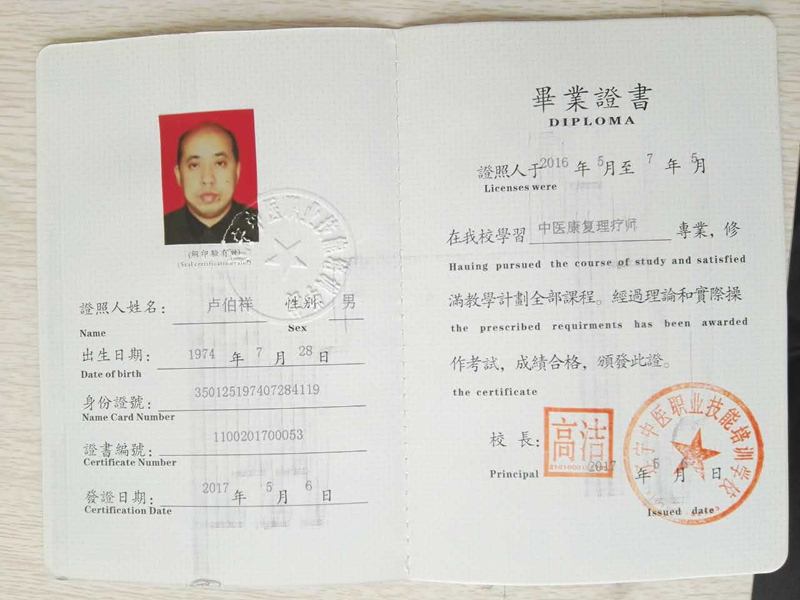 (鋼印驗有效)
(Seal certification valid)
證照人姓名: 卢伯祥 性別: 男
Name Sex
出生日期: 1974 年 7 月 28 日
Date of birth
身份證號: 350125197407284119
Name Card Number
證書編號: 1100201700053
Certificate Number
發證日期: 2017 年 5 月 6 日
Certification Date
畢業證書
DIPLOMA
證照人于 2016 年 5 月至 7 年 5 月
Licenses were
在我校學習 中医康复理疗师 專業，修
Hauing pursued the course of study and satisfied
滿教學計劃全部課程。經過理論和實際操
the prescribed requirments has been awarded
作考試，成績合格，頒發此證。
the certificate
校長: 高洁
Principal 2017 年 5 月 6 日
Issued date
宁中医职业技能培训学校